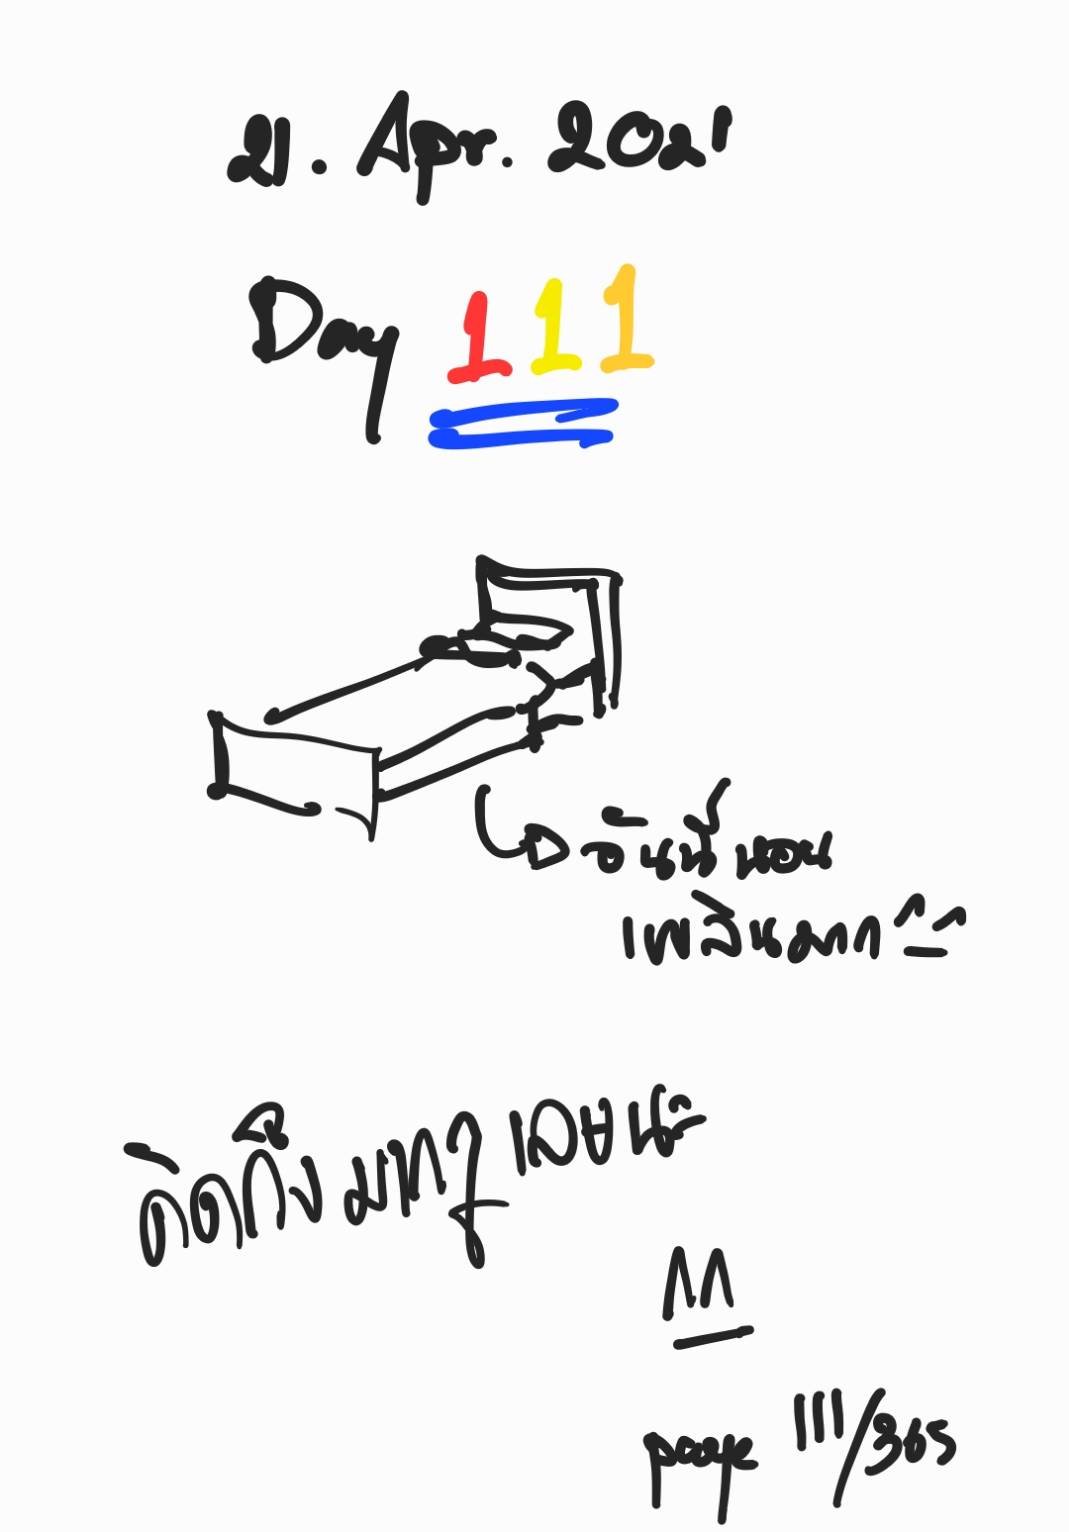 21. Apr. 2021
Day 111
อันนี้นอน
เพลินมาก ^_^
คิดถึง เลยนะ
^^
page 111/365